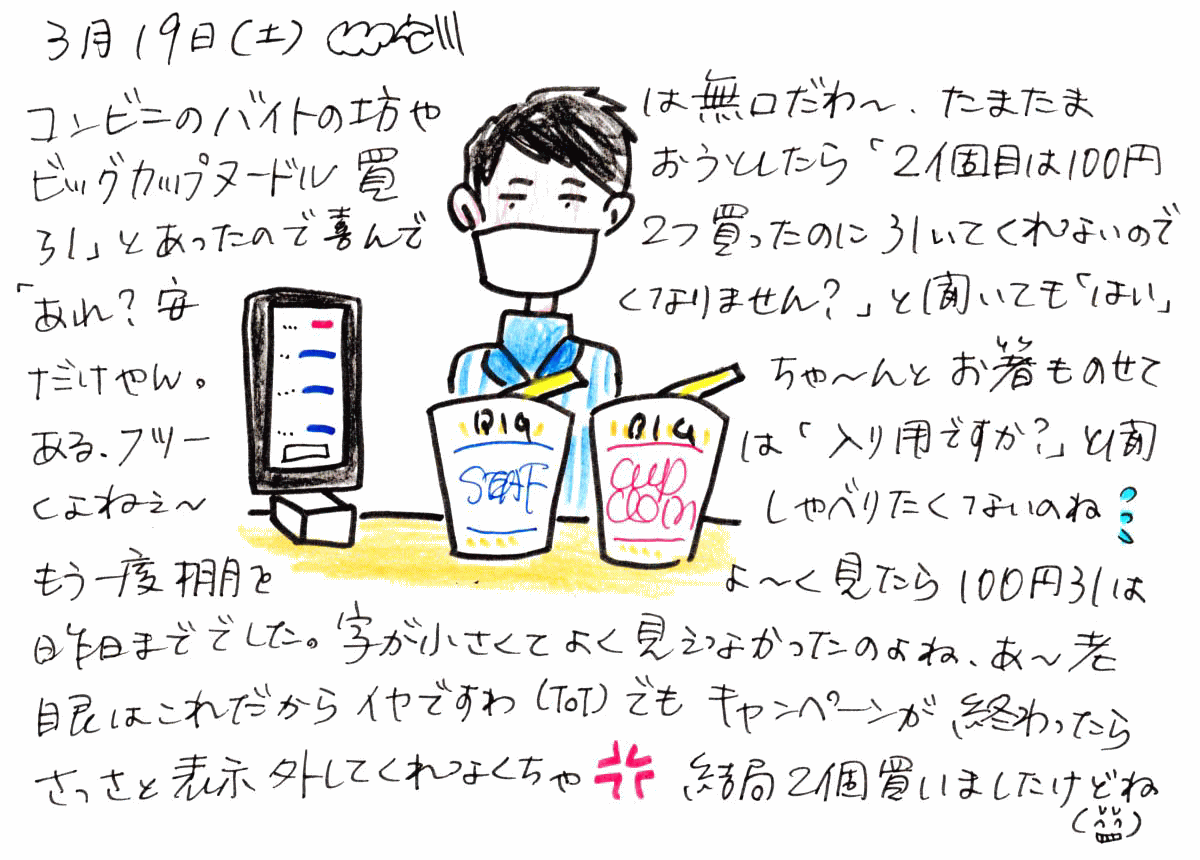 3月19日(土)
コンビニのバイトの坊や は無口だわ〜、たまたま
ビッグカップヌードル買 おうとしたら「2個目は100円
引」とあったので喜んで 2つ買ったのに引いてくれないので
「あれ?安 くなりません?」と聞いても「はい」
だけやん。 ちゃ〜んとお箸ものせて
ある、フツー は「入り用ですか?」と聞
くよねぇ〜 しゃべりたくないのね
もう一度棚を よ〜く見たら100円引は
昨日まででした。字が小さくてよく見えなかったのよね、あ〜老
眼はこれだからイヤですわ(ToT)でもキャンペーンが終わったら
さっさと表示外してくれなくちゃ 結局2個買いましたけどね
BIG
BIG
CUP